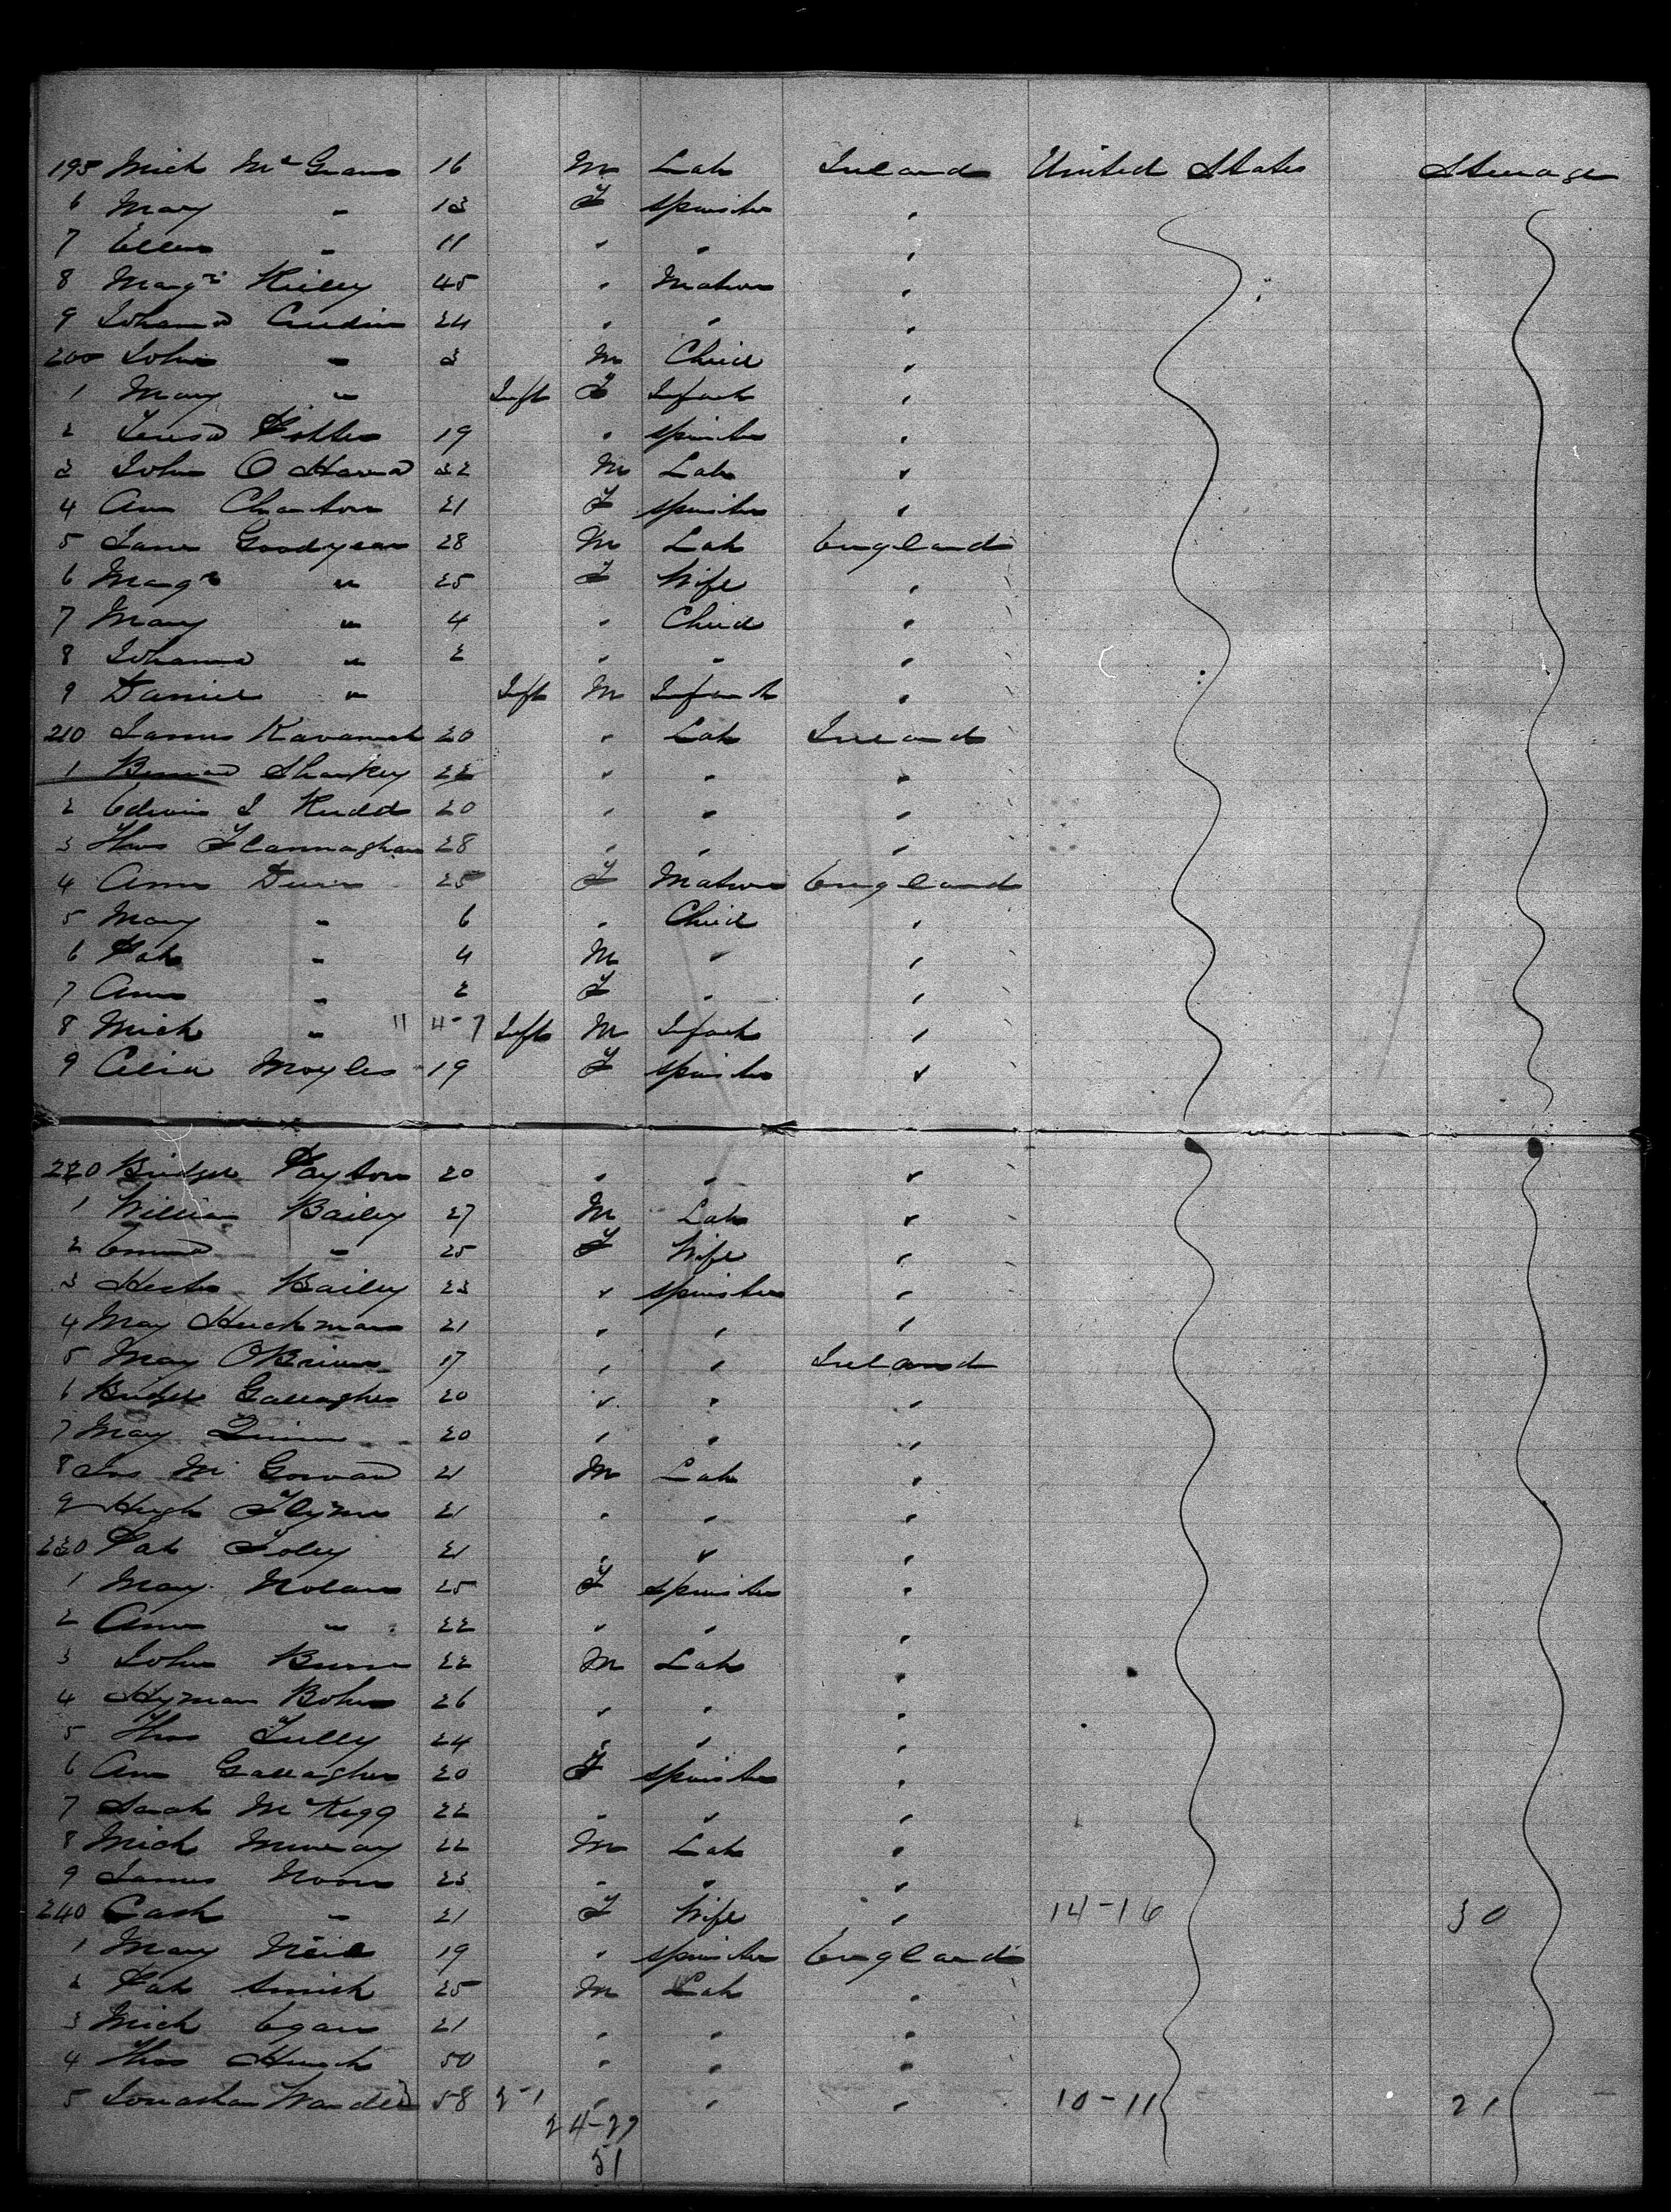 195 Mich McGrans 16 M Lab Ireland United States Steerage
6 Mary " 13 F Spinster "
7 Ellen " 11 " " "
8 Margt Kielly 45 " Matron "
9 Johanna 24 " " "
200 John " 3 M Child "
1 Mary " Inft F Infant "
2 Teresa Potter 19 " Spinster "
3 John O Hara 32 M Lab "
4 Ann Charlton 21 F Spinster "
5 James Goodyear 28 M Lab England
6 Margt " 25 F Wife "
7 Mary " 4 " Child "
8 Johanna " 2 " " "
9 Daniel " Inft M Infant "
210 James Kavanah 20 " Lab Ireland
1 Bernard Sharkey 22 " " "
2 Edwin J Rudd 20 " " "
3 Thos Flannaghan 28 " " "
4 Ann 25 F Matron England
5 Mary " 6 " Child "
6 Pat " 4 M " "
7 Ann " 2 F " "
8 Mich " 11 4-7 Inft M Infant "
9 Celia Moyles 19 F Spinster "
220 Bridget Payton 20 " " "
1 William Bailey 27 M Lab "
2 Emma " 25 F Wife "
3 Hester Bailey 23 " Spinster "
4 Mary 21 " " "
5 Mary OBrien 17 " " Ireland
6 Bridget Gallagher 20 " " "
7 Mary Quinn 20 " " "
8 Jas McGowan 21 M Lab "
9 Hugh Flynn 21 " " "
230 Pat Foley 21 " " "
1 Mary Nolan 25 F Spinster "
2 Ann " 22 " " "
3 John Burn 22 M Lab "
4 Hyman Bohn 26 " " "
5 Thos Tully 24 " " "
6 Ann Gallagher 20 F Spinster "
7 Sarah McKegg 22 " " "
8 Mich Murray 22 M Lab "
9 James Noon 23 " " "
240 Cath " 21 F Wife " 14-16 30
1 Mary Neil 19 " Spinster England
2 Pat Smith 25 M Lab "
3 Mich Egan 21 " " "
4 Thos 50 " " "
5 Jonathan 58 2-1 " " " 10-11 21
24-27
51